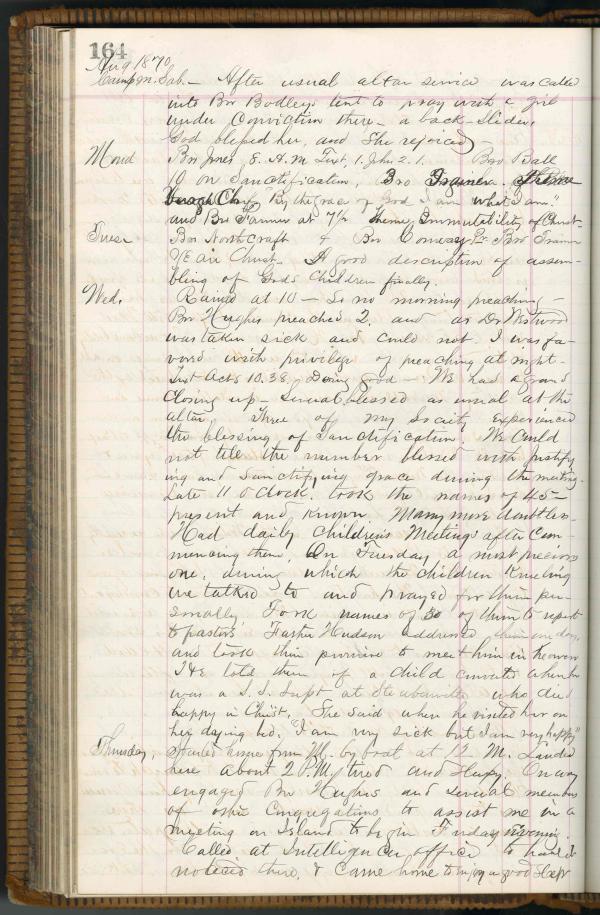 164
Aug 1870,
Camp m. Sab. – After usual altar service was called
into Bro Bodleys tent to pray with a girl
under Conviction there – a back-slider.
God blessed her, and She rejoiced –
Mond Bro Jones 8. A.M. Text, 1. John 2. 1. Bro Ball
10 on Sanctification, Bro
"By the grace of God I am what I am."
and Bro at 7½ Theme, Immutability of Christ–
Tues Bro Northcraft & Bro Conway P.M. Bro
YE are Christ. A good description of assem-
bling of Gods Children finally.
Wed, Rained at 10 – So no morning preaching –
Bro Hughes preached 2. and as Dr Westwood
was taken sick and could not. I was fa-
vored with privilege of preaching at night–
Text Acts 10.38. Doing good – We had a grand
Closing up – Several blessed as usual at the
altar, Three of my Society experienced
the blessing of Sanctification. We Could
not tell the number blessed with justify
ing and Sanctifying grace during the meeting.
Late 11 o clock. took the names of 45 –
present and known Many more doubtless–
Had daily Childrens Meetings after Com-
mencing them. On Tuesday a most precious
one, during which the children Kneeling
we talked to and prayed for them per-
sonally Took names of 30 of them to report
to pastors. Father Hudson addressed them on day,
and took their promise to meet him in heaven
He told them of a child convert when he
was a S. S. Supt. at Steubenville who died
happy in Christ. She said when he visited her on
her dying bed, "I am very sick but I am very happy"
Thursday, Started home from M. by boat at 12 M. Landed
here about 2 P.M. tired and Happy. On way
engaged Bro Hughes and Several members
of other Congregations to assist me in a
meeting on Island to begin Friday evening.
Called at Intelligencer office to have it
noticed there, & Came home to enjoy a good